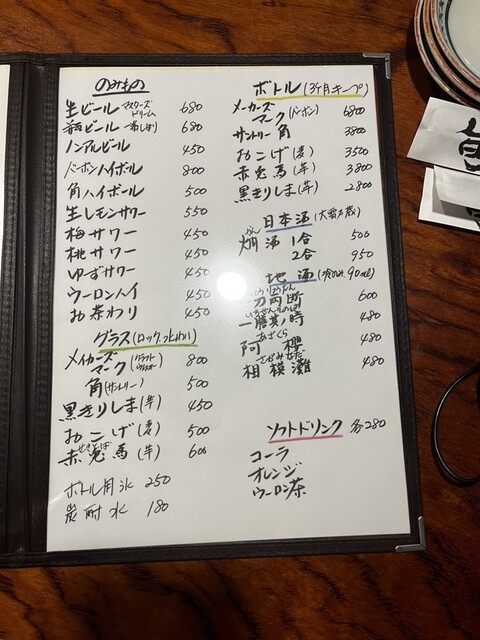 のみもの
生ビール マスターズドリーム 680
ビール 一番しぼり 680
ノンアルビール 450
バーボンハイボール 800
角ハイボール 500
生レモンサワー 550
梅サワー 450
桃サワー 450
ゆずサワー 450
ウーロンハイ 450
お茶わり 450
グラス(ロック、水わり)
メイカーズ
マーク(クラフトウイスキー) 800
角(サントリー) 500
黒きりしま(芋) 450
おこげ(麦) 500
せきとば
赤兎馬(芋) 600
ボトル用氷 250
炭酎水 180
ボトル(3ヶ月キープ)
メーカーズ
マーク(バーボン) 6800
サントリー角 3800
おこげ(麦) 3500
赤兎馬(芋) 3800
黒きりしま(芋) 2800
日本酒(大
かん
燗酒 1合 500
2合 950
地酒 90ml)
いっとうりょうだん
一刀両断 600
一膳 時 480
あざくら
阿櫻 480
さがみなだ
相模灘 480
ソフトドリンク 各280
コーラ
オレンジ
ウーロン茶